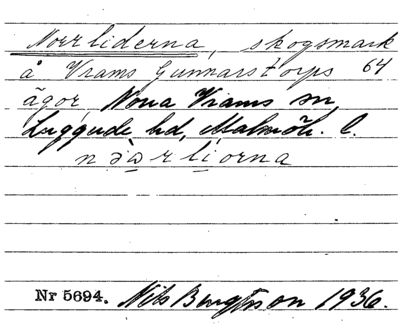 Norrliderna, skogsmark
å Vrams Gunnarstorps 64
ägor, Nova Vrams sn,
Luggude hd, Malmöh. l.
nəərliorna
Nr 5694. Nils Bengtsson 1936.